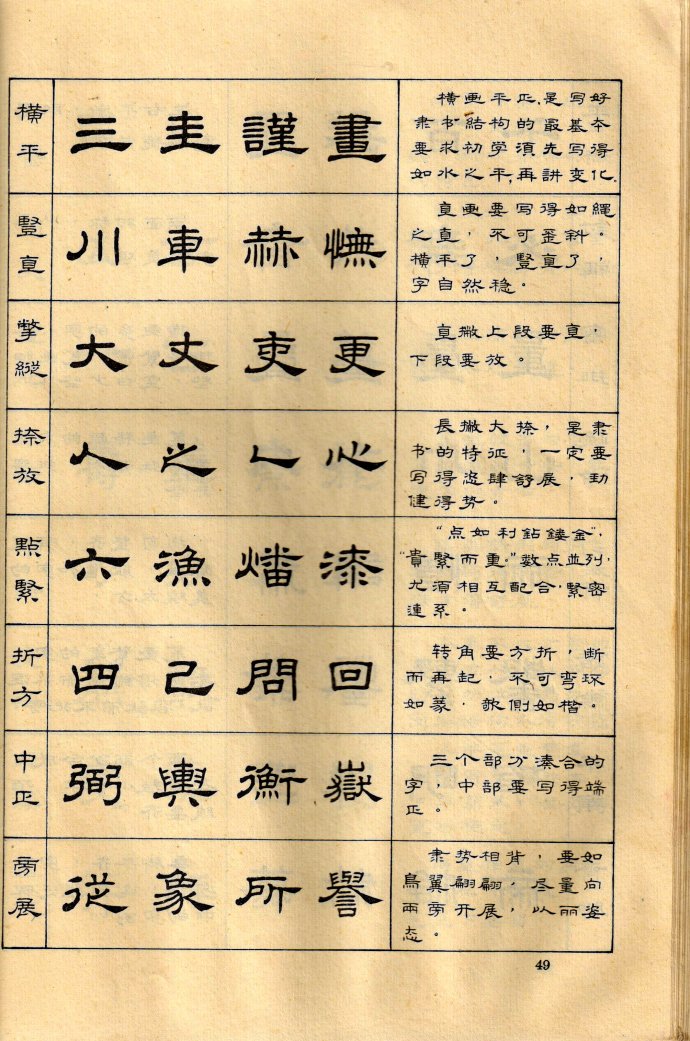 横平
三 圭 謹 畫
横画平正,是写好
隶书结构的最基本
要求初学須先写得
如水之平,再讲变化.
豎直
川 車 赫 憮
直画要写得如繩
之直,不可歪斜。
横平了,豎直了,
字自然稳。
撇縱
大 丈 吏 更
直撇上段要直,
下段要放。
捺放
人 之 心
長撇大捺,是隶
书的特征,一定要
写得恣肆舒展,劲
健得势。
點緊
六 漁 燔 漆
“点如利鉆鏤金”,
“貴緊而重。”数点並列,
尤須相互配合,緊密
連系。
折方
四 己 問 回
转角要方折,断
而再起,不可弯环
如篆,欹側如楷。
中正
弼 輿 衡 嶽
三个部分湊合的
字,中部要写得端
正。
旁展
從 象 所 譽
隶势相背,要如
鳥翼翩翩,尽量向
兩旁开展,以丽姿
态。
49